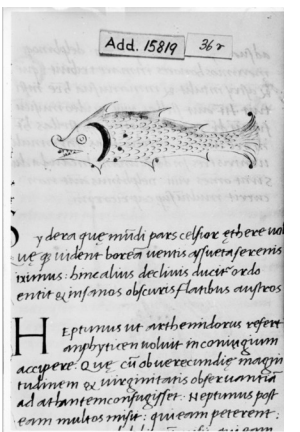 Add. 15819 36r
Sydera que mũdi pars celsior ethere vol
que & uident borea uentis assueta serenis
iximus: hinc alius declinis ducit ordo
entit & insanos obscuris flatibus austros
HEptunus ut arthemidorus refert
amphyticen voluit in coniugium
accipere. Que cũ ob uerecundie magni
tudinem & uirginitatis obseruantiã
ad athantem confugisset. Neptunus post
eam multos misit: qui eam peterent: